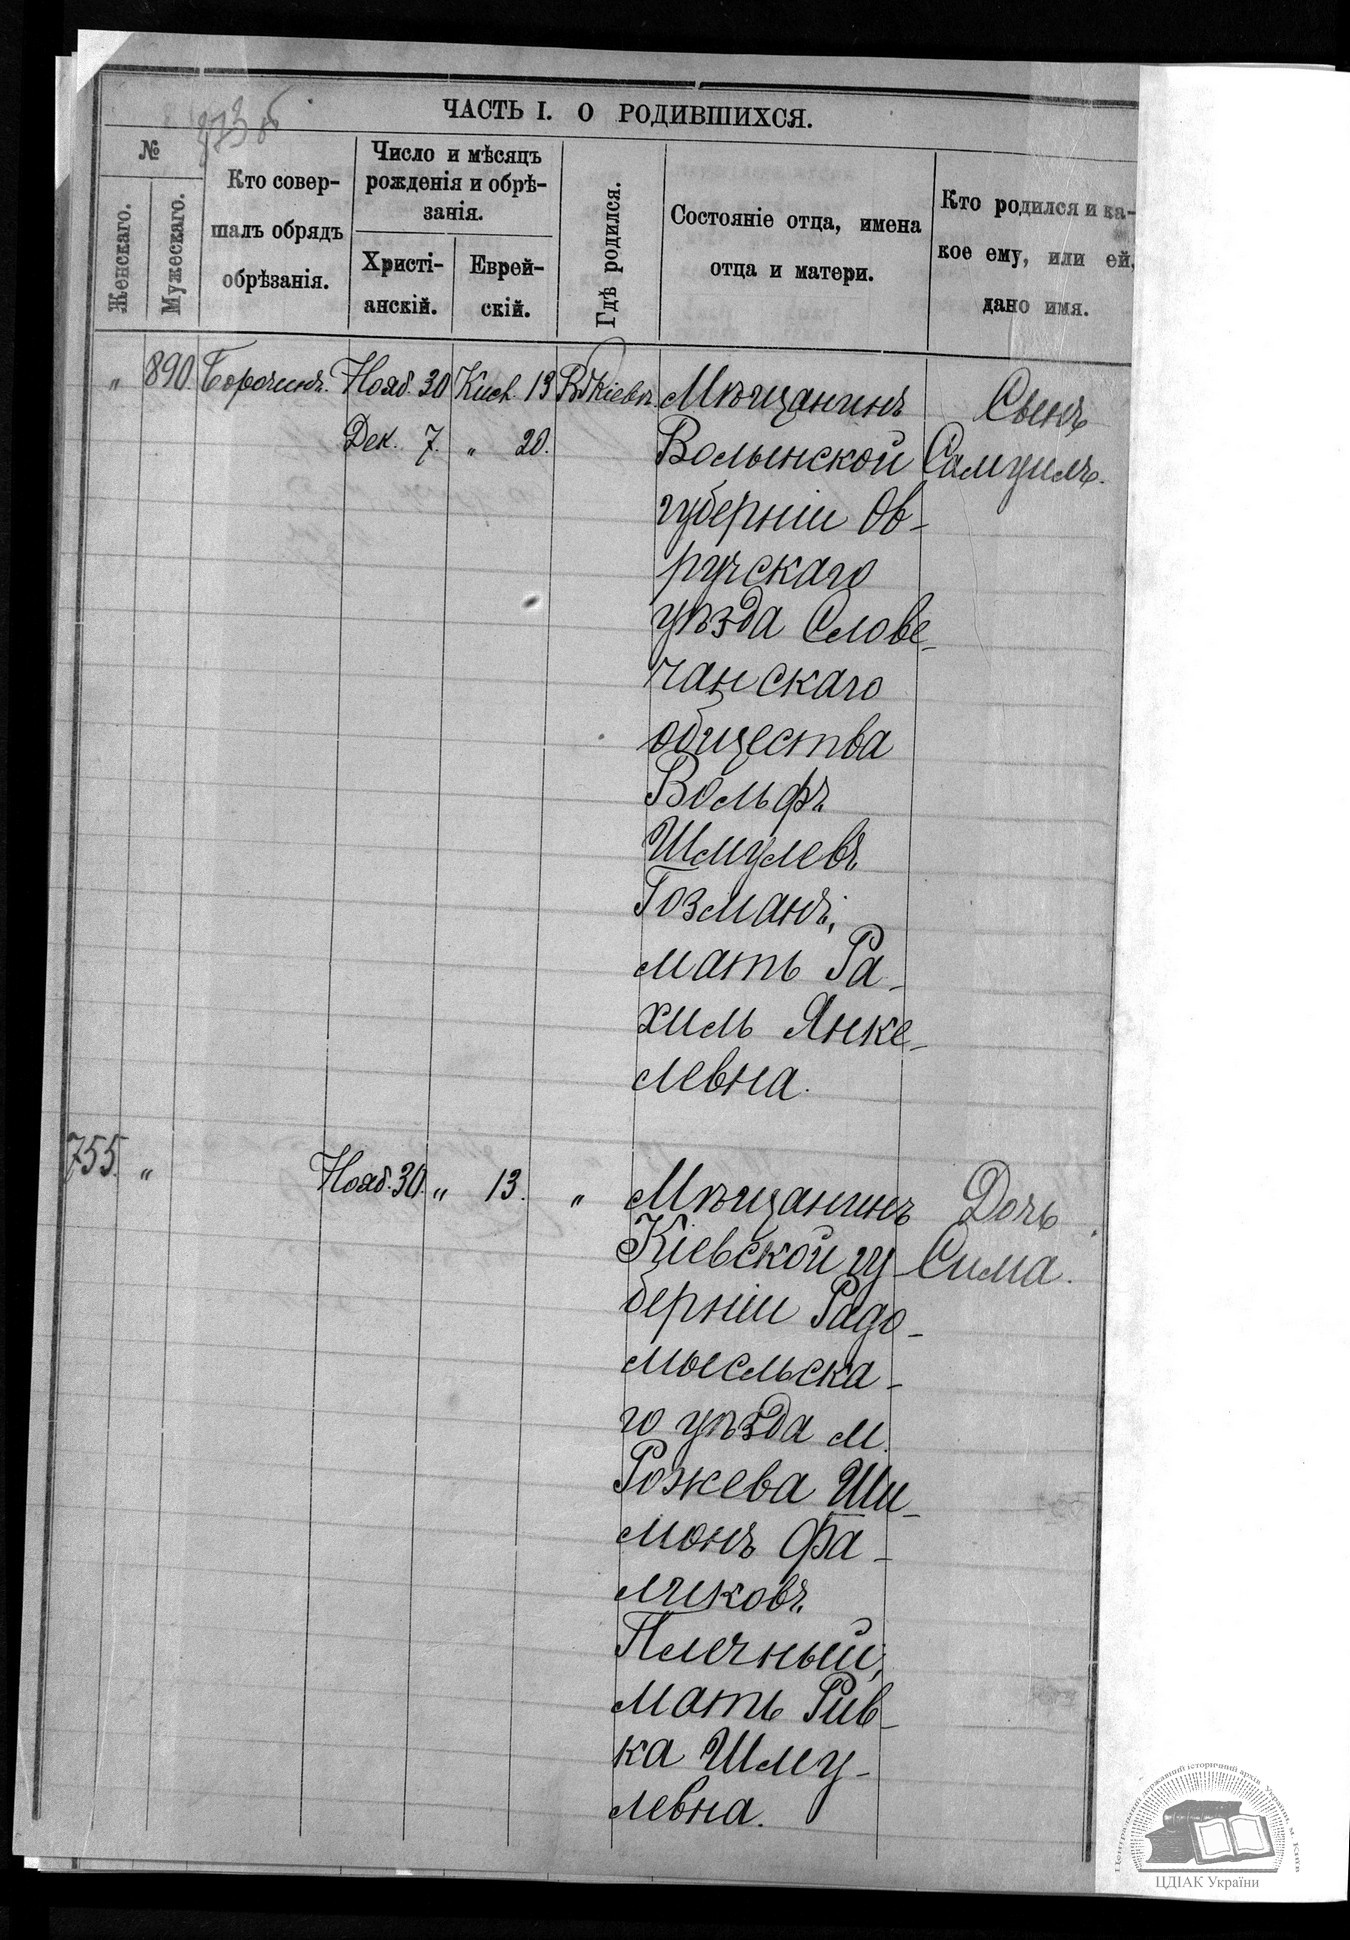 ЧАСТЬ I. О РОДИВШИХСЯ.
№
Женскаго.
Мужескаго.
Кто совер-
шалъ обрядъ
обрѣзанія.
Число и мѣсяцъ
рожденія и обрѣ-
занія.
Христі-
анскій.
Еврей-
скій.
Гдѣ родился.
Состояніе отца, имена
отца и матери.
Кто родился и ка-
кое ему, или ей,
дано имя.
" 890 Борочинъ. Нояб. 30 Кисл. 13 Въ Кіевѣ. Мѣщанинъ Сынъ
Дек. 7. " 20. Волынской Самуилъ.
губерніи Ов-
ручскаго
уѣзда Слове-
чанскаго
общества
Вольфъ
Шмулевъ
Гозманъ,
мать Ра-
хиль Янке-
левна.
755. " Нояб. 30. " 13. " Мѣщанинъ Дочь
Кіевской гу- Сима.
берніи Радо-
мысльска-
го уѣзда м.
Рожева Ши-
монъ Фа-
ликовъ
Плечный,
мать Рив-
ка Шму-
левна.
Центральний державний історичний архів України, м. Київ
ЦДІАК України